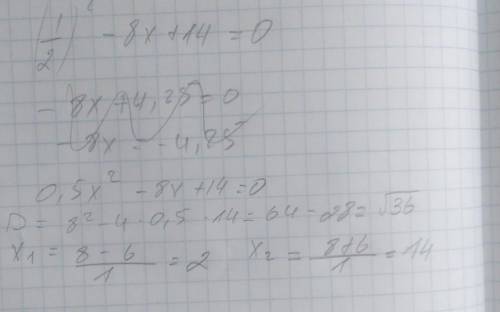 (1/2)² - 8x + 14 = 0
- 8x + 4,25 = 0
- 8x = - 4,25
0,5x² - 8x + 14 = 0
D = 8² - 4 · 0,5 · 14 = 64 - 28 = √36
x₁ = (8 - 6)/1 = 2    x₂ = (8 + 6)/1 = 14